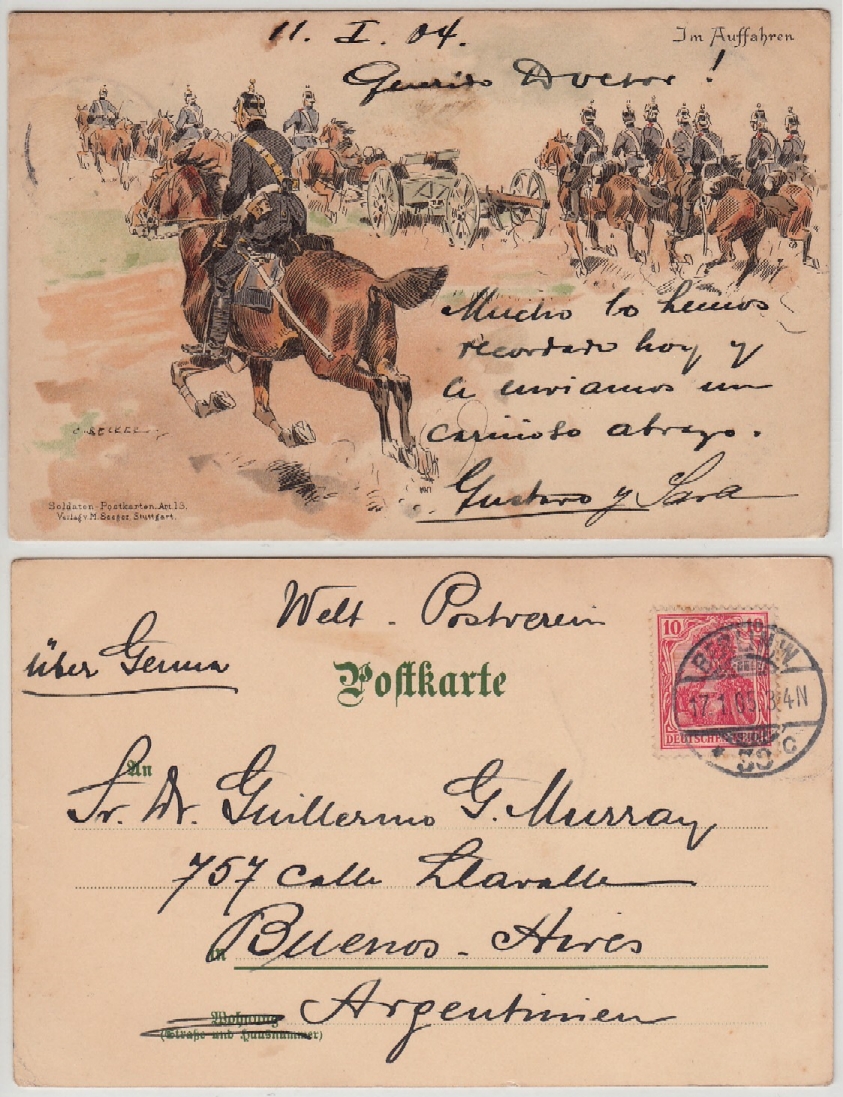 11. I. 04.
Im Auffahren
Querido Doctor!
47
Mucho lo hemos
recordado hoy y
le enviamos un
cariñoso abrazo.
Gustavo y Sara
C. BECKER
Soldaten-Postkarten. Art. 13.
Verlag v. M. Seeger, Stuttgart.
Welt - Postverein
über Genua
Postkarte
10
10
DEUTSCHES REICH
BERLIN W
17.1.05. 3-4N
* 30 c
An
Sr. Dr. Guillermo G. Murray
757 calle Llavalle
in Buenos-Aires
Argentinien
Wohnung
(Straße und Hausnummer)